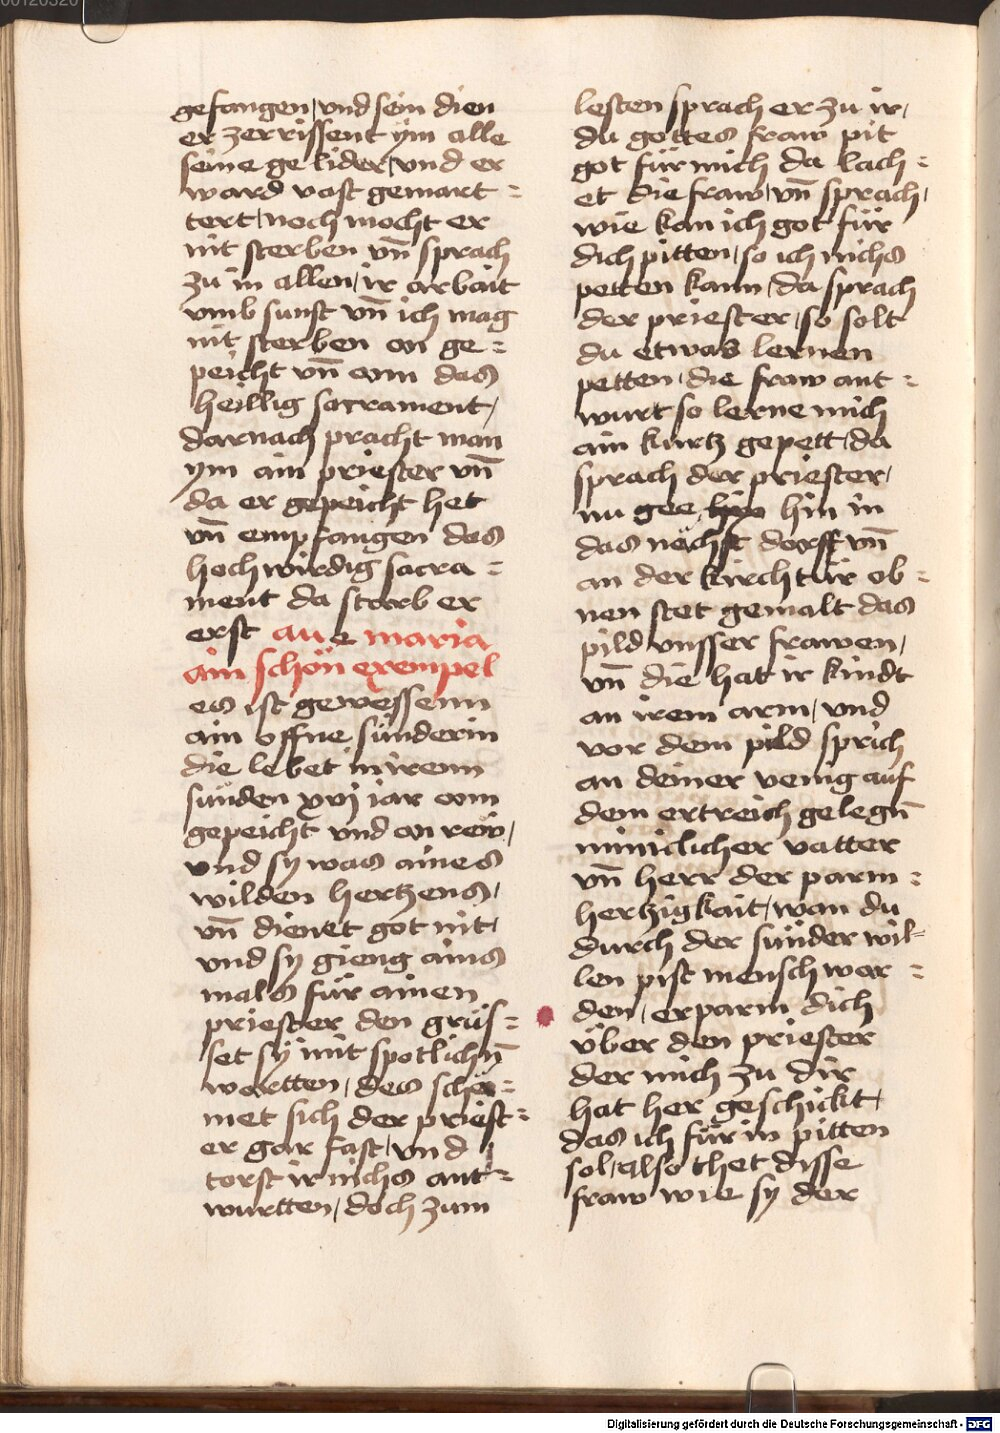 gefangen / vnd sein dien
er zerrissent ym alle
seine gelider / vnd er
ward vast gemart =
tert / noch mocht er
nit sterben vn̄ sprach
zu in allen / ir arbait
vmb sunst vn̄ ich mag
nit sterben on ge =
peicht vn̄ onn das
heillig sacrament /
darnach pracht man
ym ain priester vn̄
da er gepeicht het
vn̄ empfangen das
hochwirdig sacra =
ment da starb er
erst aue maria
ain schön exempel
es ist gewessenn
ain offne sünderin
die lebet in irenn
sünden xvj iar onn
gepeicht vnd on rew /
vnd sy was aines
wilden hertzens /
vn̄ dienet got nit /
vnd sy gieng ains
mals für ainen
priester den grüs =
set sy mit spotlichn̄
wortten / des sche =
met sich der priest =
er gar fast / vnd
torst ir nichs ant =
wurtten / doch zum
lesten sprach er zu ir /
du gottes fraw pit
got für mich da lach =
et die fraw / vn̄ sprach /
wie kan ich got für
dich pitten / so ich nichs
petten kann / da sprach
der priester / so solt
du etwas lernen
petten / die fraw ant =
wurt so lerne mich
ain kurtz gepett / da
sprach der priester /
nu gee hin in
das nöchst dorff vn̄
an der kirchtür ob =
nen stet gemalt das
pild vnsser frawen /
vn̄ die hat ir kindt
an irem arm / vnd
vor dem pild sprich
an deiner venig auf
dem ertreich gelegn̄
miniclicher vatter
vn̄ herr der parm =
hertzigkait / wan du
durch der sünder wil =
len pist mensch wor =
den / erparm dich
über den priester
der mich zu dir
hat her geschickt /
das ich für in pitten
sol / also thet disse
fraw wie sy der
Digitalisierung gefördert durch die Deutsche Forschungsgemeinschaft - DFG